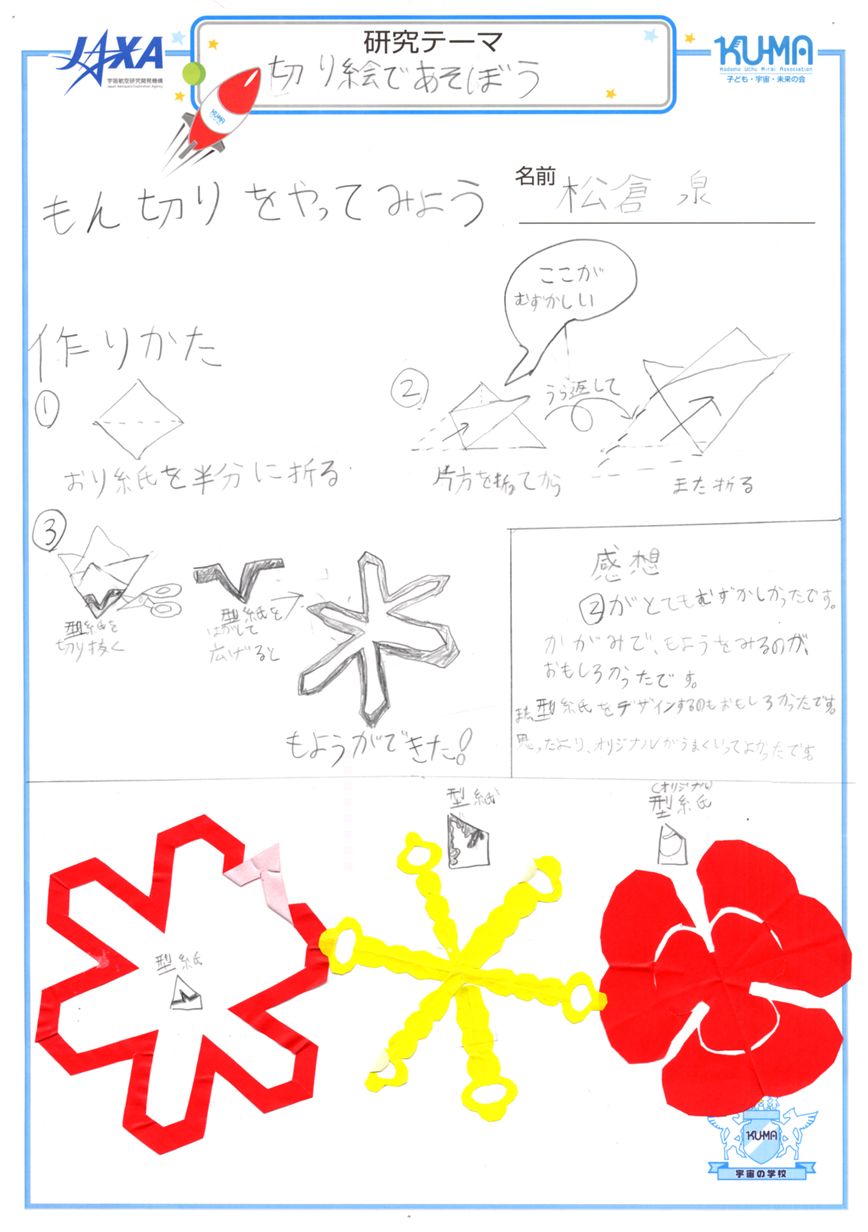 JAXA
宇宙航空研究開発機構
Japan Aerospace Exploration Agency
研究テーマ
切り絵であそぼう
KUMA
Kodomo Uchu Mirai Association
子ども・宇宙・未来の会
KUMA
もん切りをやってみよう
名前 松倉 泉
ここが
むずかしい
作りかた
①
おり紙を半分に折る
②
うら返して
片方を折ってから
また折る
③
型紙を
切り抜く
型紙を
はがして
広げると
もようができた!
感想
②がとてもむずかしかったです。
かがみで、もようをみるのが、
おもしろかったです。
また型紙をデザインするのもおもしろかったです。
思ったより、オリジナルがうまくいってよかったです
型紙
型紙
(オリジナル)
型紙
KUMA
宇宙の学校